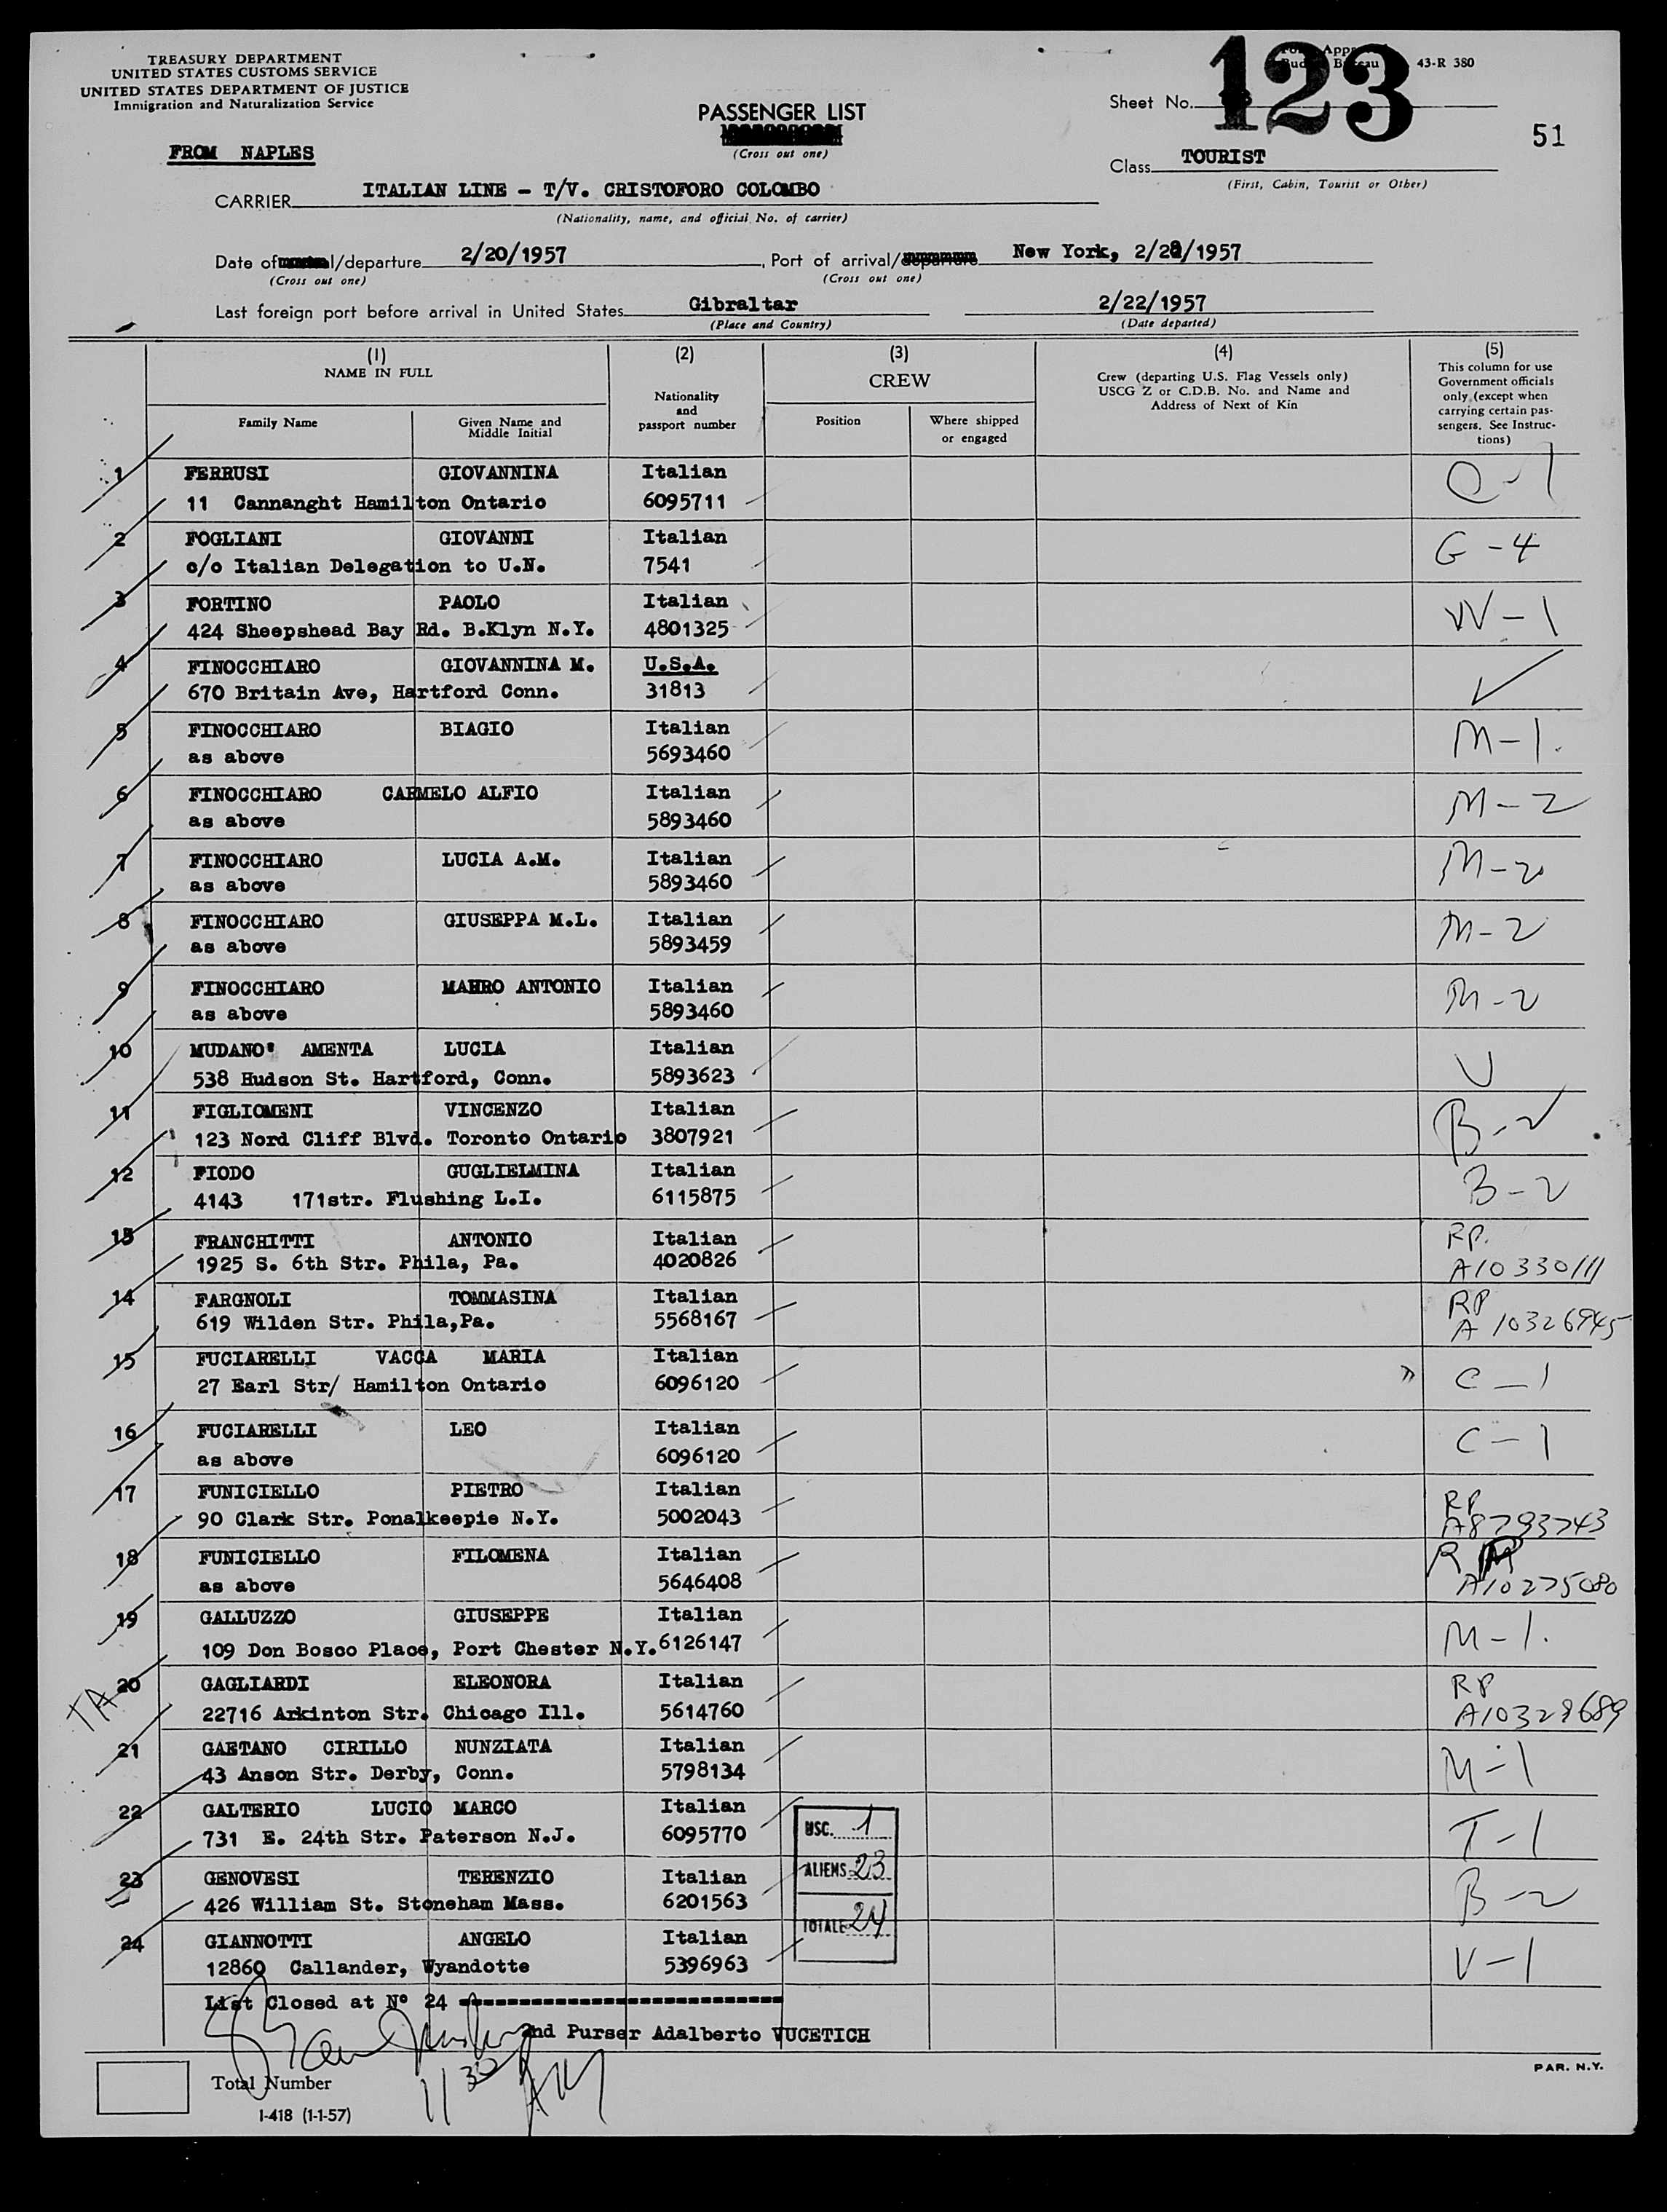 TREASURY DEPARTMENT
UNITED STATES CUSTOMS SERVICE
UNITED STATES DEPARTMENT OF JUSTICE
Immigration and Naturalization Service
43-R 380
Sheet No.
123
51
PASSENGER LIST
(Cross out one)
FROM NAPLES
Class TOURIST
(First, Cabin, Tourist or Other)
CARRIER ITALIAN LINE - T/V. CRISTOFORO COLOMBO
(Nationality, name, and official No. of carrier)
Date of /departure 2/20/1957, Port of arrival/departure New York, 2/28/1957
(Cross out one) (Cross out one)
Last foreign port before arrival in United States Gibraltar 2/22/1957
(Place and Country) (Date departed)
(1) NAME IN FULL
Family Name
Given Name and Middle Initial
(2)
Nationality and passport number
(3)
CREW
Position
Where shipped or engaged
(4)
Crew (departing U.S. Flag Vessels only)
USCG Z or C.D.B. No. and Name and
Address of Next of Kin
(5)
This column for use
Government officials
only (except when
carrying certain pas-
sengers. See Instruc-
tions)
1 FERRUSI GIOVANNINA Italian
11 Cannanght Hamilton Ontario 6095711
2 FOGLIANI GIOVANNI Italian G-4
c/o Italian Delegation to U.N. 7541
3 FORTINO PAOLO Italian
424 Sheepshead Bay Rd. B.Klyn N.Y. 4801325
4 FINOCCHIARO GIOVANNINA M. U.S.A.
670 Britain Ave, Hartford Conn. 31813
5 FINOCCHIARO BIAGIO Italian M-1.
as above 5693460
6 FINOCCHIARO CARMELO ALFIO Italian M-2
as above 5893460
7 FINOCCHIARO LUCIA A.M. Italian M-2
as above 5893460
8 FINOCCHIARO GIUSEPPA M.L. Italian M-2
as above 5893459
9 FINOCCHIARO MAHRO ANTONIO Italian M-2
as above 5893460
10 MUDANO' AMENTA LUCIA Italian
538 Hudson St. Hartford, Conn. 5893623
11 FIGLIOMENI VINCENZO Italian B-2
123 Nord Cliff Blvd. Toronto Ontario 3807921
12 FIODO GUGLIELMINA Italian B-2
4143 171str. Flushing L.I. 6115875
13 FRANCHITTI ANTONIO Italian RP.
1925 S. 6th Str. Phila, Pa. 4020826 A10330111
14 FARGNOLI TOMMASINA Italian RP
619 Wilden Str. Phila,Pa. 5568167 A 10326945
15 FUCIARELLI VACCA MARIA Italian C-1
27 Earl Str/ Hamilton Ontario 6096120
16 FUCIARELLI LEO Italian C-1
as above 6096120
17 FUNICIELLO PIETRO Italian RP
90 Clark Str. Ponalkeepie N.Y. 5002043 A8793743
18 FUNICIELLO FILOMENA Italian R
as above 5646408 A10275080
19 GALLUZZO GIUSEPPE Italian M-1.
109 Don Bosco Place, Port Chester N.Y. 6126147
TA 20 GAGLIARDI ELEONORA Italian RP
22716 Arkinton Str. Chicago Ill. 5614760 A10328689
21 GAETANO CIRILLO NUNZIATA Italian M-1
43 Anson Str. Derby, Conn. 5798134
22 GALTERIO LUCIO MARCO Italian T-1
731 E. 24th Str. Paterson N.J. 6095770
USC. 1
ALIENS 23
TOTALE 24
23 GENOVESI TERENZIO Italian B-2
426 William St. Stoneham Mass. 6201563
24 GIANNOTTI ANGELO Italian V-1
12860 Callander, Wyandotte 5396963
List Closed at Nº 24
2nd Purser Adalberto VUCETICH
1130 AM
PAR. N.Y.
Total Number
I-418 (1-1-57)